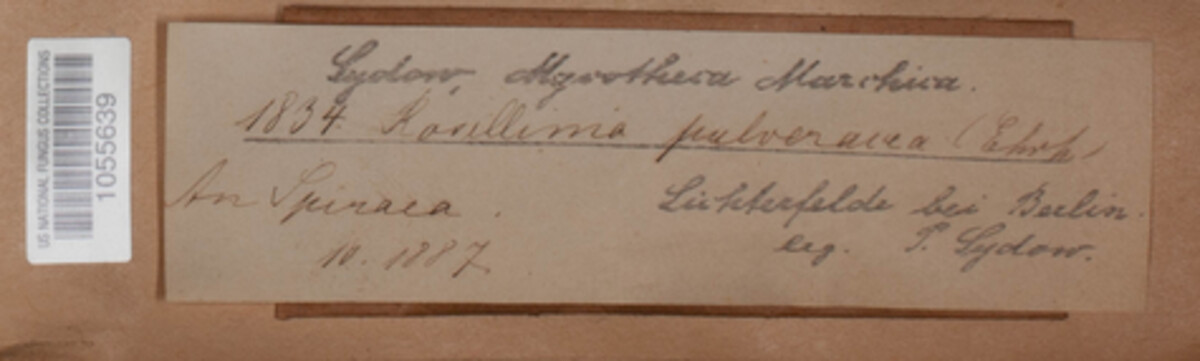 US NATIONAL FUNGUS COLLECTIONS
1055639
Sydow, Mycotheca Marchica.
1834. Rosellinia pulveracea (Ehrh)
An Spiraea.
10. 1887.
Lichterfelde bei Berlin.
leg. P. Sydow.